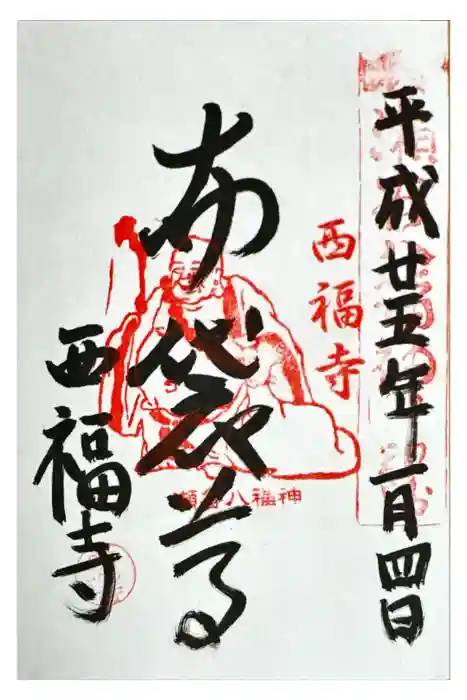 平成廿五年一月四日
西福寺
布袋尊
神福八谷瀬
西福寺